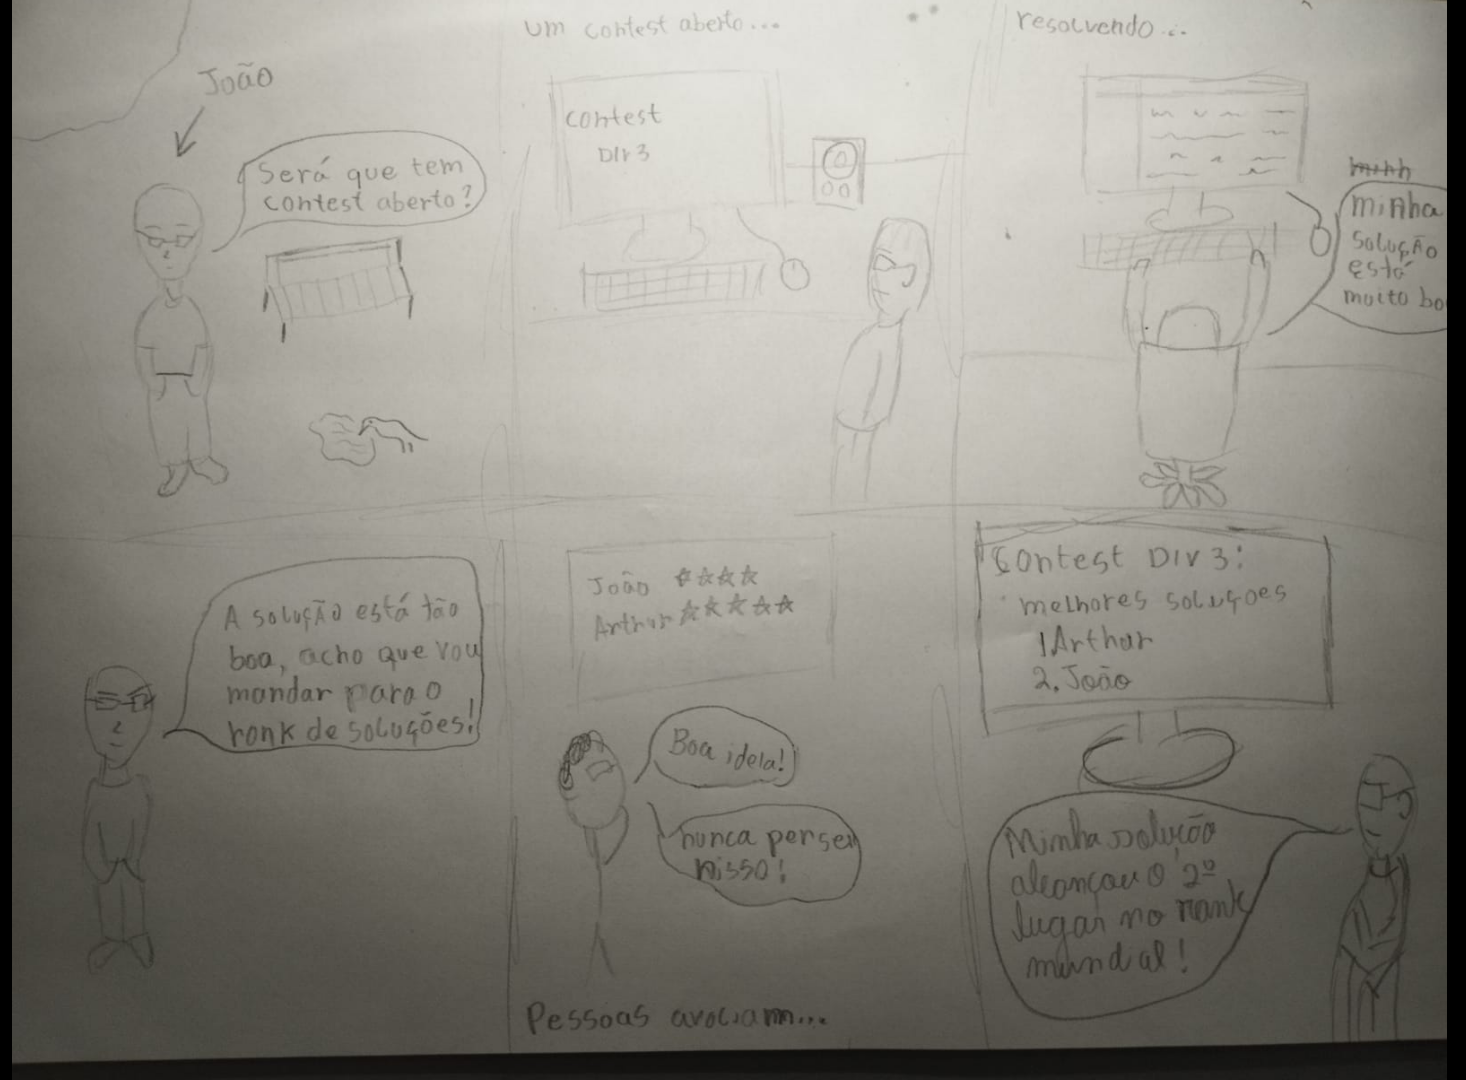 João
Será que tem
contest aberto?
um contest aberto...
contest
Div 3
resolvendo...
minha
solução
está
muito bo
A solução está tão
boa, acho que vou
mandar para o
rank de soluções!
João ☆☆☆☆
Arthur ☆☆☆☆☆
Boa ideia!
nunca pensei
nisso!
Pessoas avaliam...
Contest Div 3:
melhores soluções
1 Arthur
2. João
Minha solução
alcançou o 2º
lugar no rank
mundial!